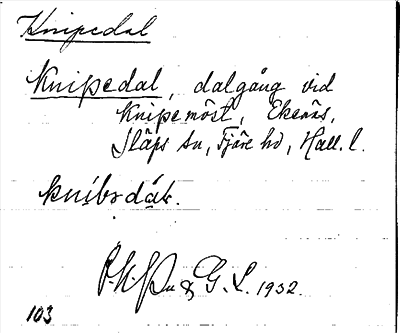 Knipedal
Knipedal, dalgång vid
Knipemöst, Ekenäs,
Släps sn, Fjäre hd, Hall. l.
knibədɑ̀ɫ.
& G. L. 1932.
103